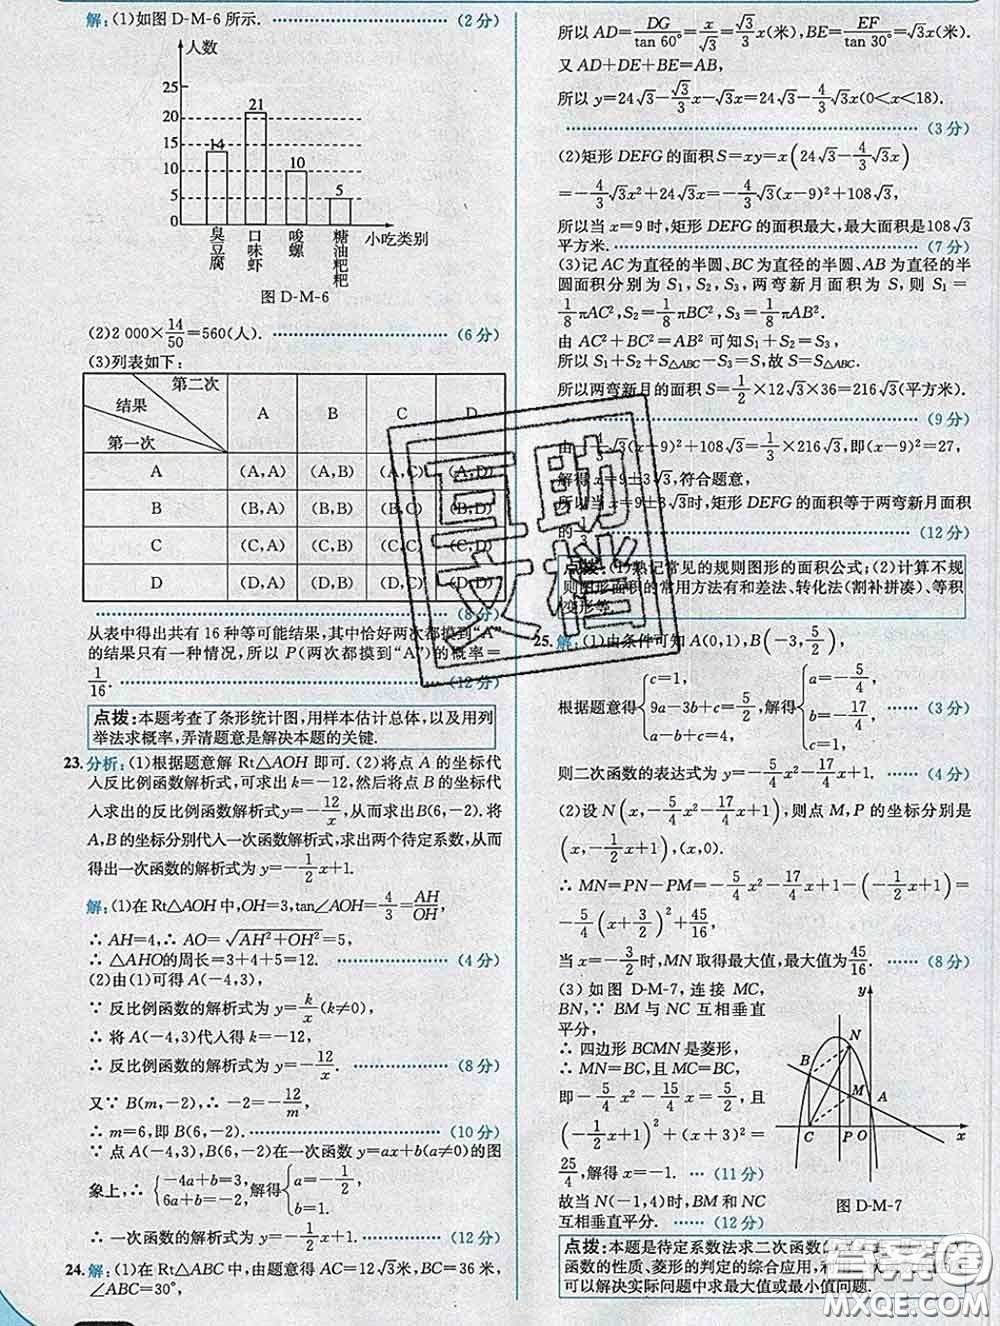 解:(1)如图 D-M-6 所示. (2 分)
人数
25
20
15
10
5
0
14
21
10
5
臭豆腐
口味虾
唆螺
糖油粑粑
小吃类别
图 D-M-6
(2)2 000×14/50=560(人). (6 分)
(3)列表如下:
第二次
结果
第一次
A B C D
A (A,A) (A,B) (A,C) (A,D)
B (B,A) (B,B) (B,C) (B,D)
C (C,A) (C,B) (C,C) (C,D)
D (D,A) (D,B) (D,C) (D,D)
(8 分)
从表中得出共有 16 种等可能结果,其中恰好两次都摸到“A”
的结果只有一种情况,所以 P(两次都摸到“A”)的概率=
1/16. (12 分)
点拨:本题考查了条形统计图,用样本估计总体,以及用列
举法求概率,弄清题意是解决本题的关键.
23.分析:(1)根据题意解 Rt△AOH 即可.(2)将点 A 的坐标代
入反比例函数解析式,可求出 k=-12,然后将点 B 的坐标
代入求出的反比例函数解析式y=-12/x,从而求出B(6,-2).将
A,B的坐标分别代入一次函数解析式,求出两个待定系数,从而
得出一次函数的解析式为 y=-1/2x+1.
解:(1)在 Rt△AOH 中,OH=3,tan∠AOH=4/3=AH/OH,
∴ AH=4,∴ AO=√(AH²+OH²)=5,
∴ △AHO的周长=3+4+5=12. (4 分)
(2)由(1)可得 A(-4,3),
∵ 反比例函数的解析式为 y=k/x(k≠0),
∴ 将 A(-4,3)代入得 k=-12,
∴ 反比例函数的解析式为 y=-12/x. (8 分)
又∵ B(m,-2),∴ -2=-12/m,
∴ m=6,即 B(6,-2). (10 分)
∵ 点 A(-4,3),B(6,-2)在一次函数 y=ax+b(a≠0)的图
象上,∴ {-4a+b=3, 6a+b=-2, 解得{a=-1/2, b=1.
∴ 一次函数的解析式为 y=-1/2x+1. (12 分)
24.解:(1)在 Rt△ABC 中,由题意得 AC=12√3米,BC=36 米,
∠ABC=30°,
所以 AD=DG/tan 60°=x/√3=√3/3x(米),BE=EF/tan 30°=√3x(米).
又 AD+DE+BE=AB,
所以 y=24√3-√3/3x-√3x=24√3-4/3√3x(0<x<18).
(3 分)
(2)矩形 DEFG 的面积 S=xy=x(24√3-4/3√3x)
=-4/3√3x²+24√3x=-4/3√3(x-9)²+108√3,
所以当 x=9 时,矩形 DEFG 的面积最大,最大面积是108√3
平方米. (7 分)
(3)记 AC为直径的半圆、BC为直径的半圆、AB为直径的半
圆面积分别为 S₁,S₂,S₃,两弯新月面积为 S,则 S₁=
1/8πAC²,S₂=1/8πBC²,S₃=1/8πAB².
由 AC²+BC²=AB² 可知 S₁+S₂=S₃,
所以 S₁+S₂+S△ABC-S₃=S△ABC.故 S=S△ABC.
所以两弯新月的面积 S=1/2×12√3×36=216√3(平方米).
(9 分)
由-4/3√3(x-9)²+108√3=1/3×216√3,即(x-9)²=27,
解得 x=9±3√3,符合题意,
所以当 x=9±3√3时,矩形 DEFG 的面积等于两弯新月面积
的1/3. (12 分)
点拨:(1)熟记常见的规则图形的面积公式;(2)计算不规
则图形面积的常用方法有和差法、转化法(割补拼凑)、等积
变形等.
25.解:(1)由条件可知 A(0,1),B(-3,5/2),
根据题意得{c=1, 9a-3b+c=5/2, a-b+c=4, 解得{a=-5/4, b=-17/4, c=1. (3 分)
则二次函数的表达式为 y=-5/4x²-17/4x+1. (4 分)
(2)设 N(x,-5/4x²-17/4x+1),则点 M,P 的坐标分别是
(x,-1/2x+1),(x,0).
∴ MN=PN-PM=-5/4x²-17/4x+1-(-1/2x+1)=
-5/4(x+3/2)²+45/16,
当 x=-3/2时,MN 取得最大值,最大值为45/16. (8 分)
(3) 如图 D-M-7,连接 MC,
BN,∵ BM 与 NC 互相垂直
平分,
∴ 四边形 BCMN 是菱形,
∴ MN=BC,且 MC=BC,
即 -5/4x²-15/4x=5/2,且
(-1/2x+1)²+(x+3)²=
25/4,解得 x=-1. (11 分)
故当 N(-1,4)时,BM 和 NC
互相垂直平分. (12 分)
y
N
B
M
A
C
P
O
x
图 D-M-7
点拨:本题是待定系数法求二次函数
函数的性质、菱形的判定的综合应用,利用
可以解决实际问题中求最大值或最小值问题.
互助
文档
答案圈
MXQE.COM